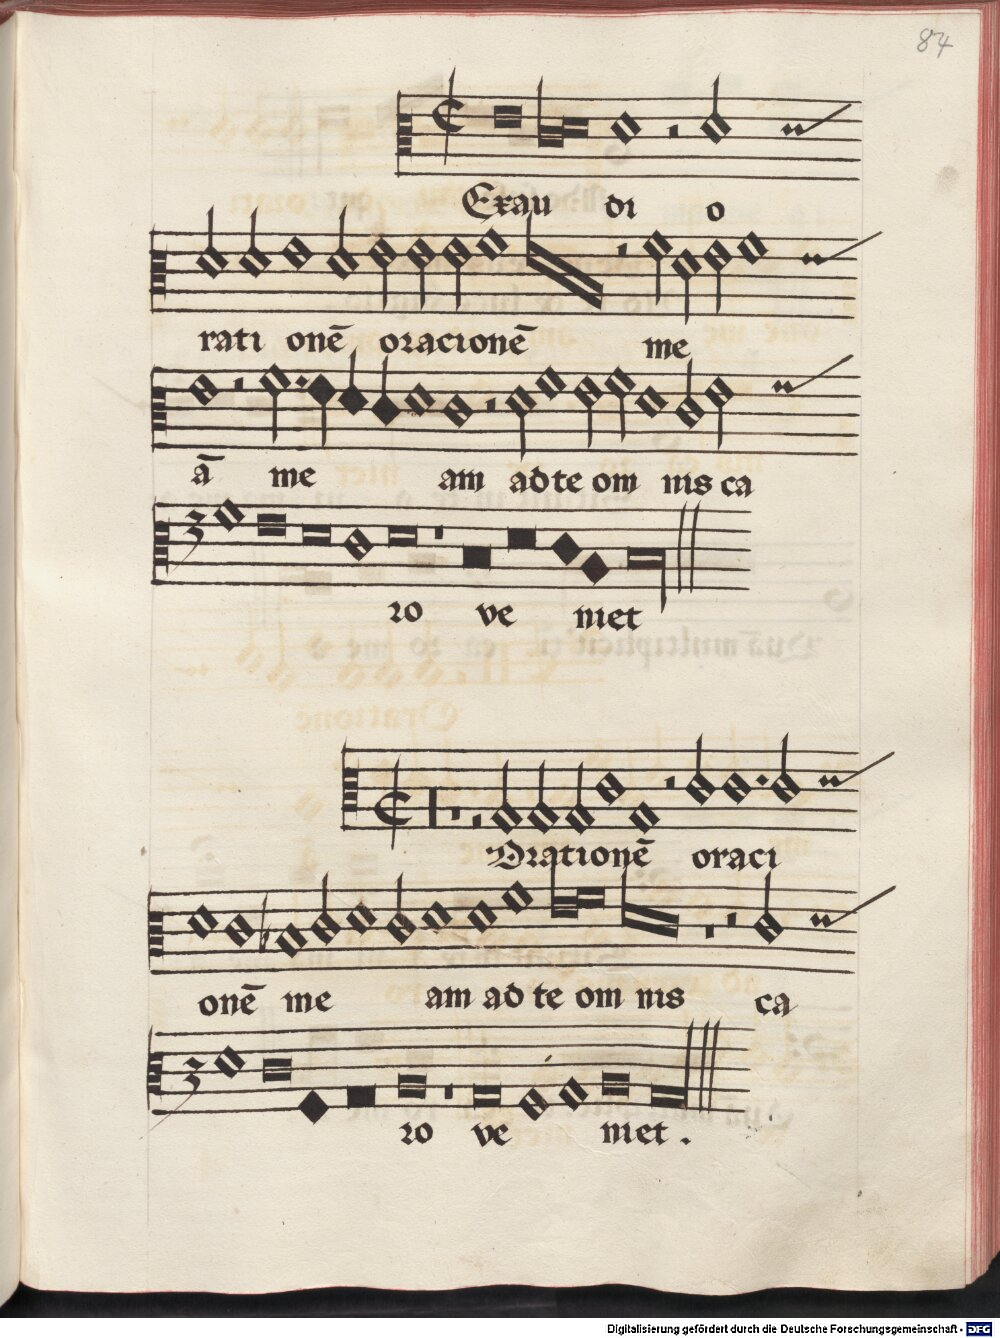 84
Exau di o
rati onē oracionē me
ā me am ad te om nis ca
ro ve niet
Orationē oraci
onē me am ad te om nis ca
ro ve niet .
Digitalisierung gefördert durch die Deutsche Forschungsgemeinschaft - DFG